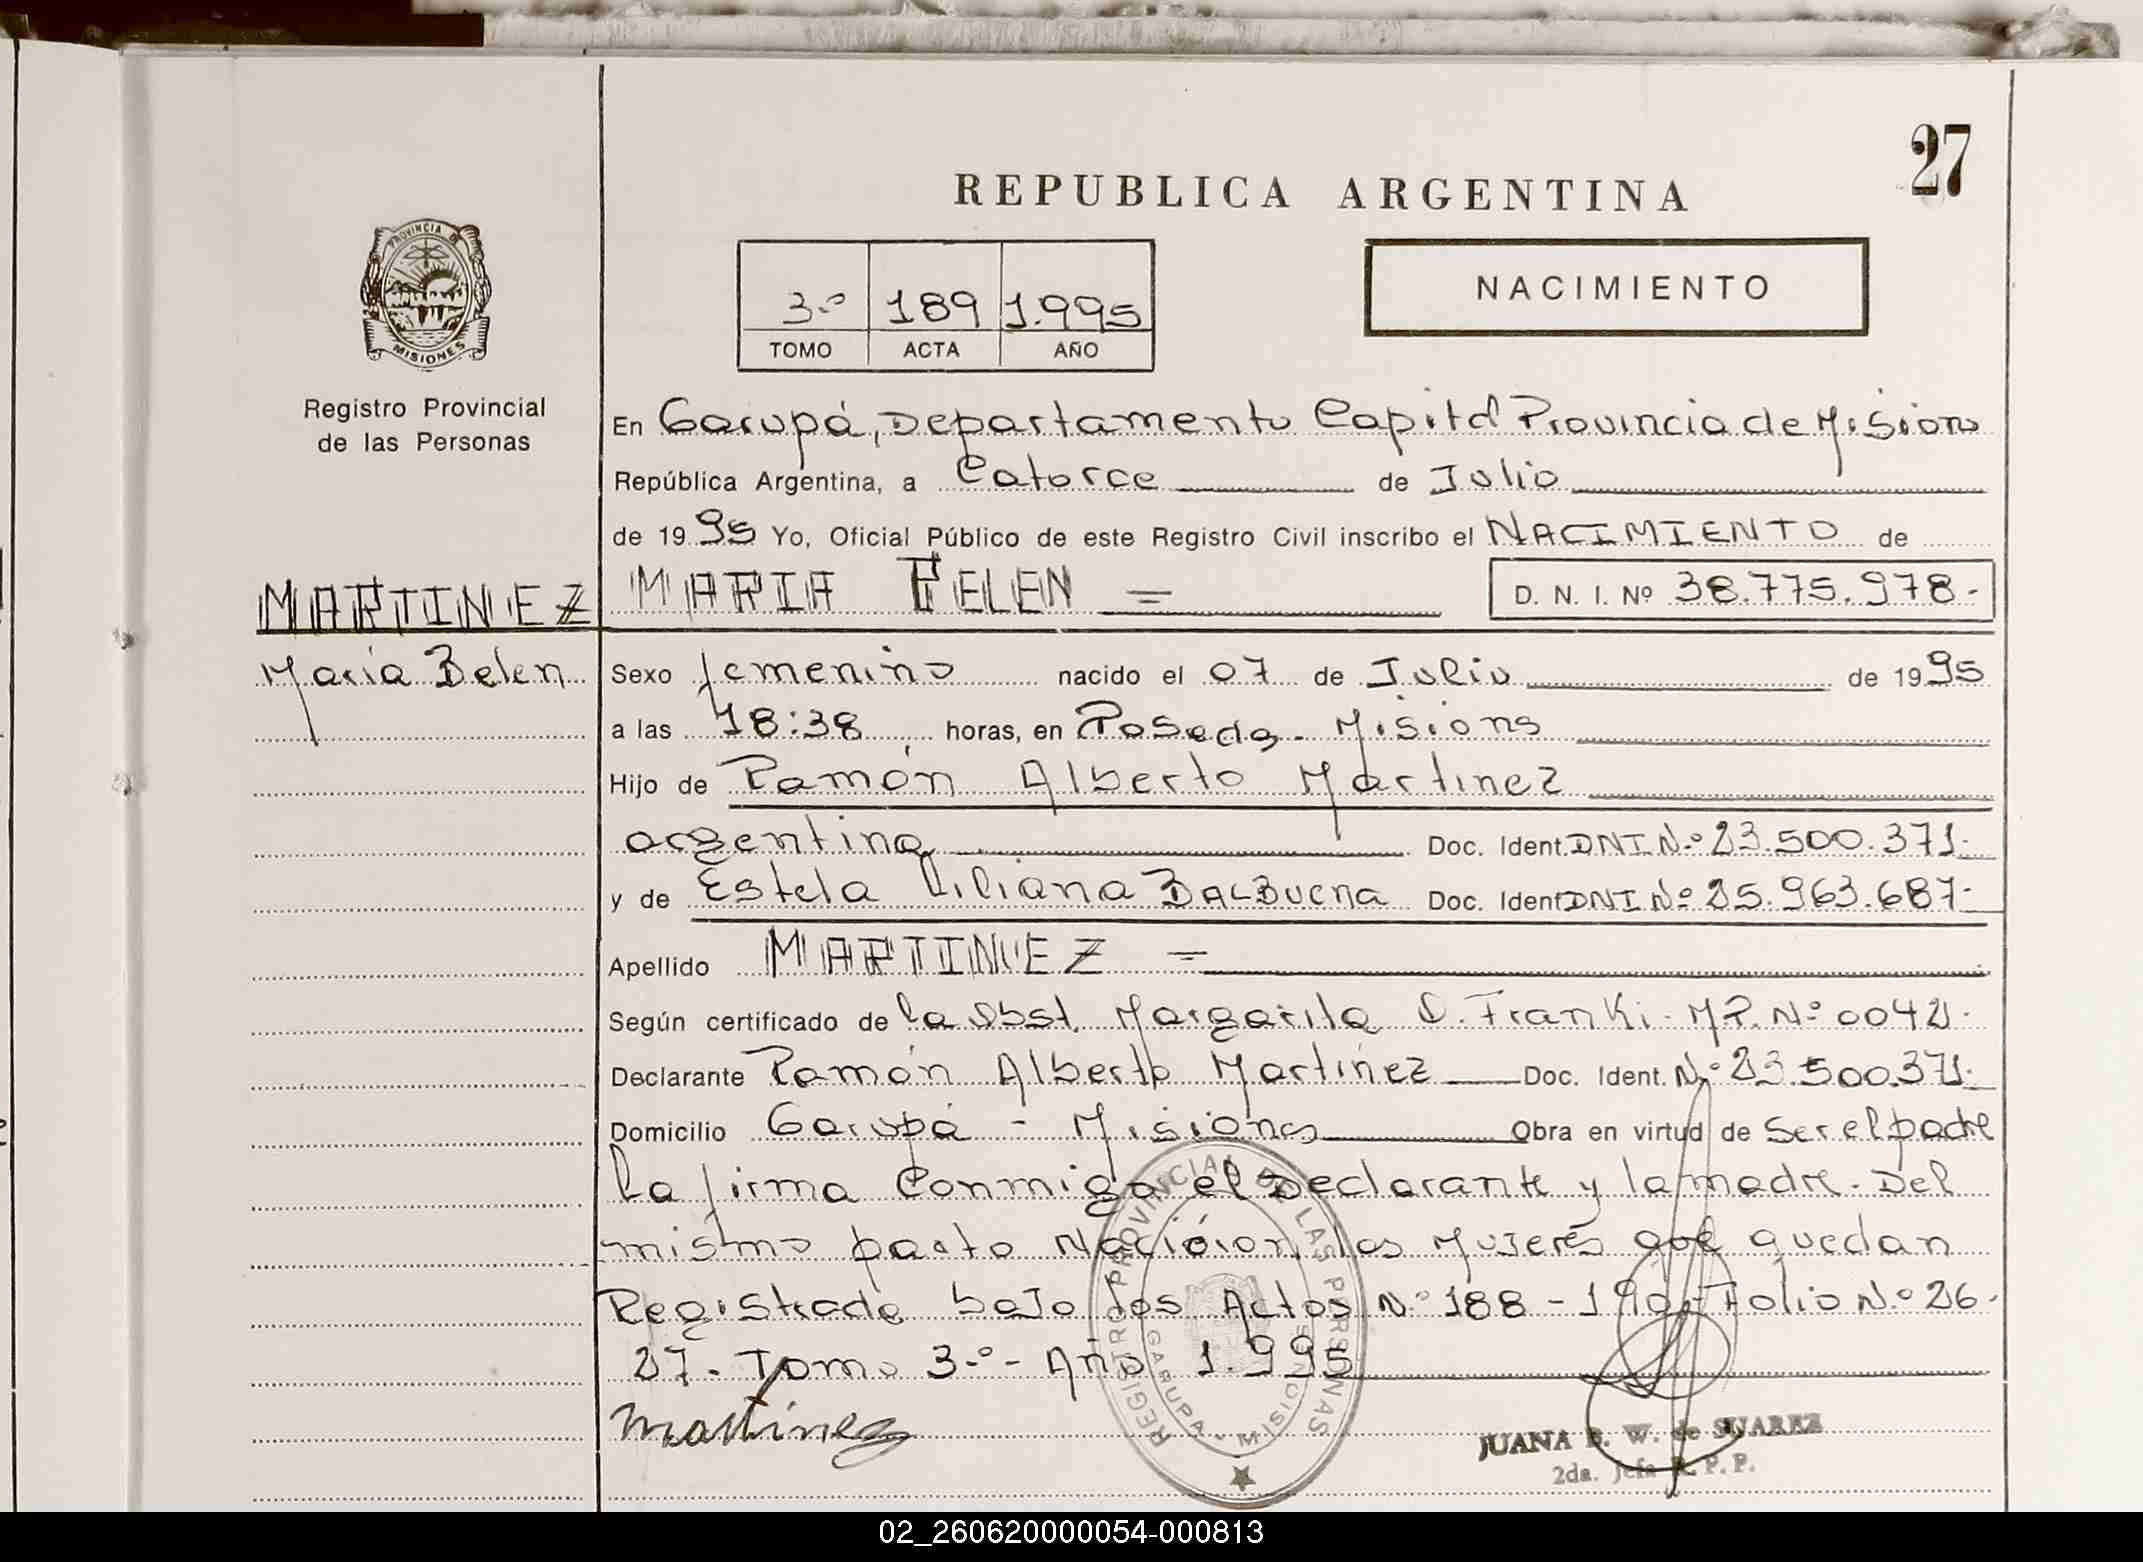 27
REPUBLICA ARGENTINA
PROVINCIA DE
MISIONES
3.º 189 1.995
TOMO ACTA AÑO
NACIMIENTO
Registro Provincial
de las Personas
En Garupá, Departamento Capital Provincia de Misiones
República Argentina, a Catorce de Julio
de 1995 Yo, Oficial Público de este Registro Civil inscribo el NACIMIENTO de
MARTINEZ MARIA BELEN = D. N. I. Nº 38.775.978.-
Maria Belen
Sexo femenino nacido el 07 de Julio de 1995
a las 18:38 horas, en Posadas - Misiones
Hijo de Ramón Alberto Martinez
argentina Doc. Ident. DNI N.º 23.500.371.
y de Estela Liliana BALBUENA Doc. Ident DNI Nº 25.963.687-
Apellido MARTINEZ =
Según certificado de la Obst. Margarita S. Franki. M.P. Nº 0042.
Declarante Ramón Alberto Martinez Doc. Ident. Nº 23.500.371.
Domicilio Garupá - Misiones Obra en virtud de ser el padre
La firma Conmigo el Declarante y la madre. Del
mismo parto Nacieron las Mujeres que quedan
Registrada bajo las Actas N.º 188 - 190 - Folio N.º 26.
27. Tomo 3.º - Año 1.995
Martinez
REGISTRO PROVINCIAL DE LAS PERSONAS
GARUPA - MISIONES
JUANA B. W. de SUAREZ
2da. Jefa R. P. P.
02_260620000054-000813